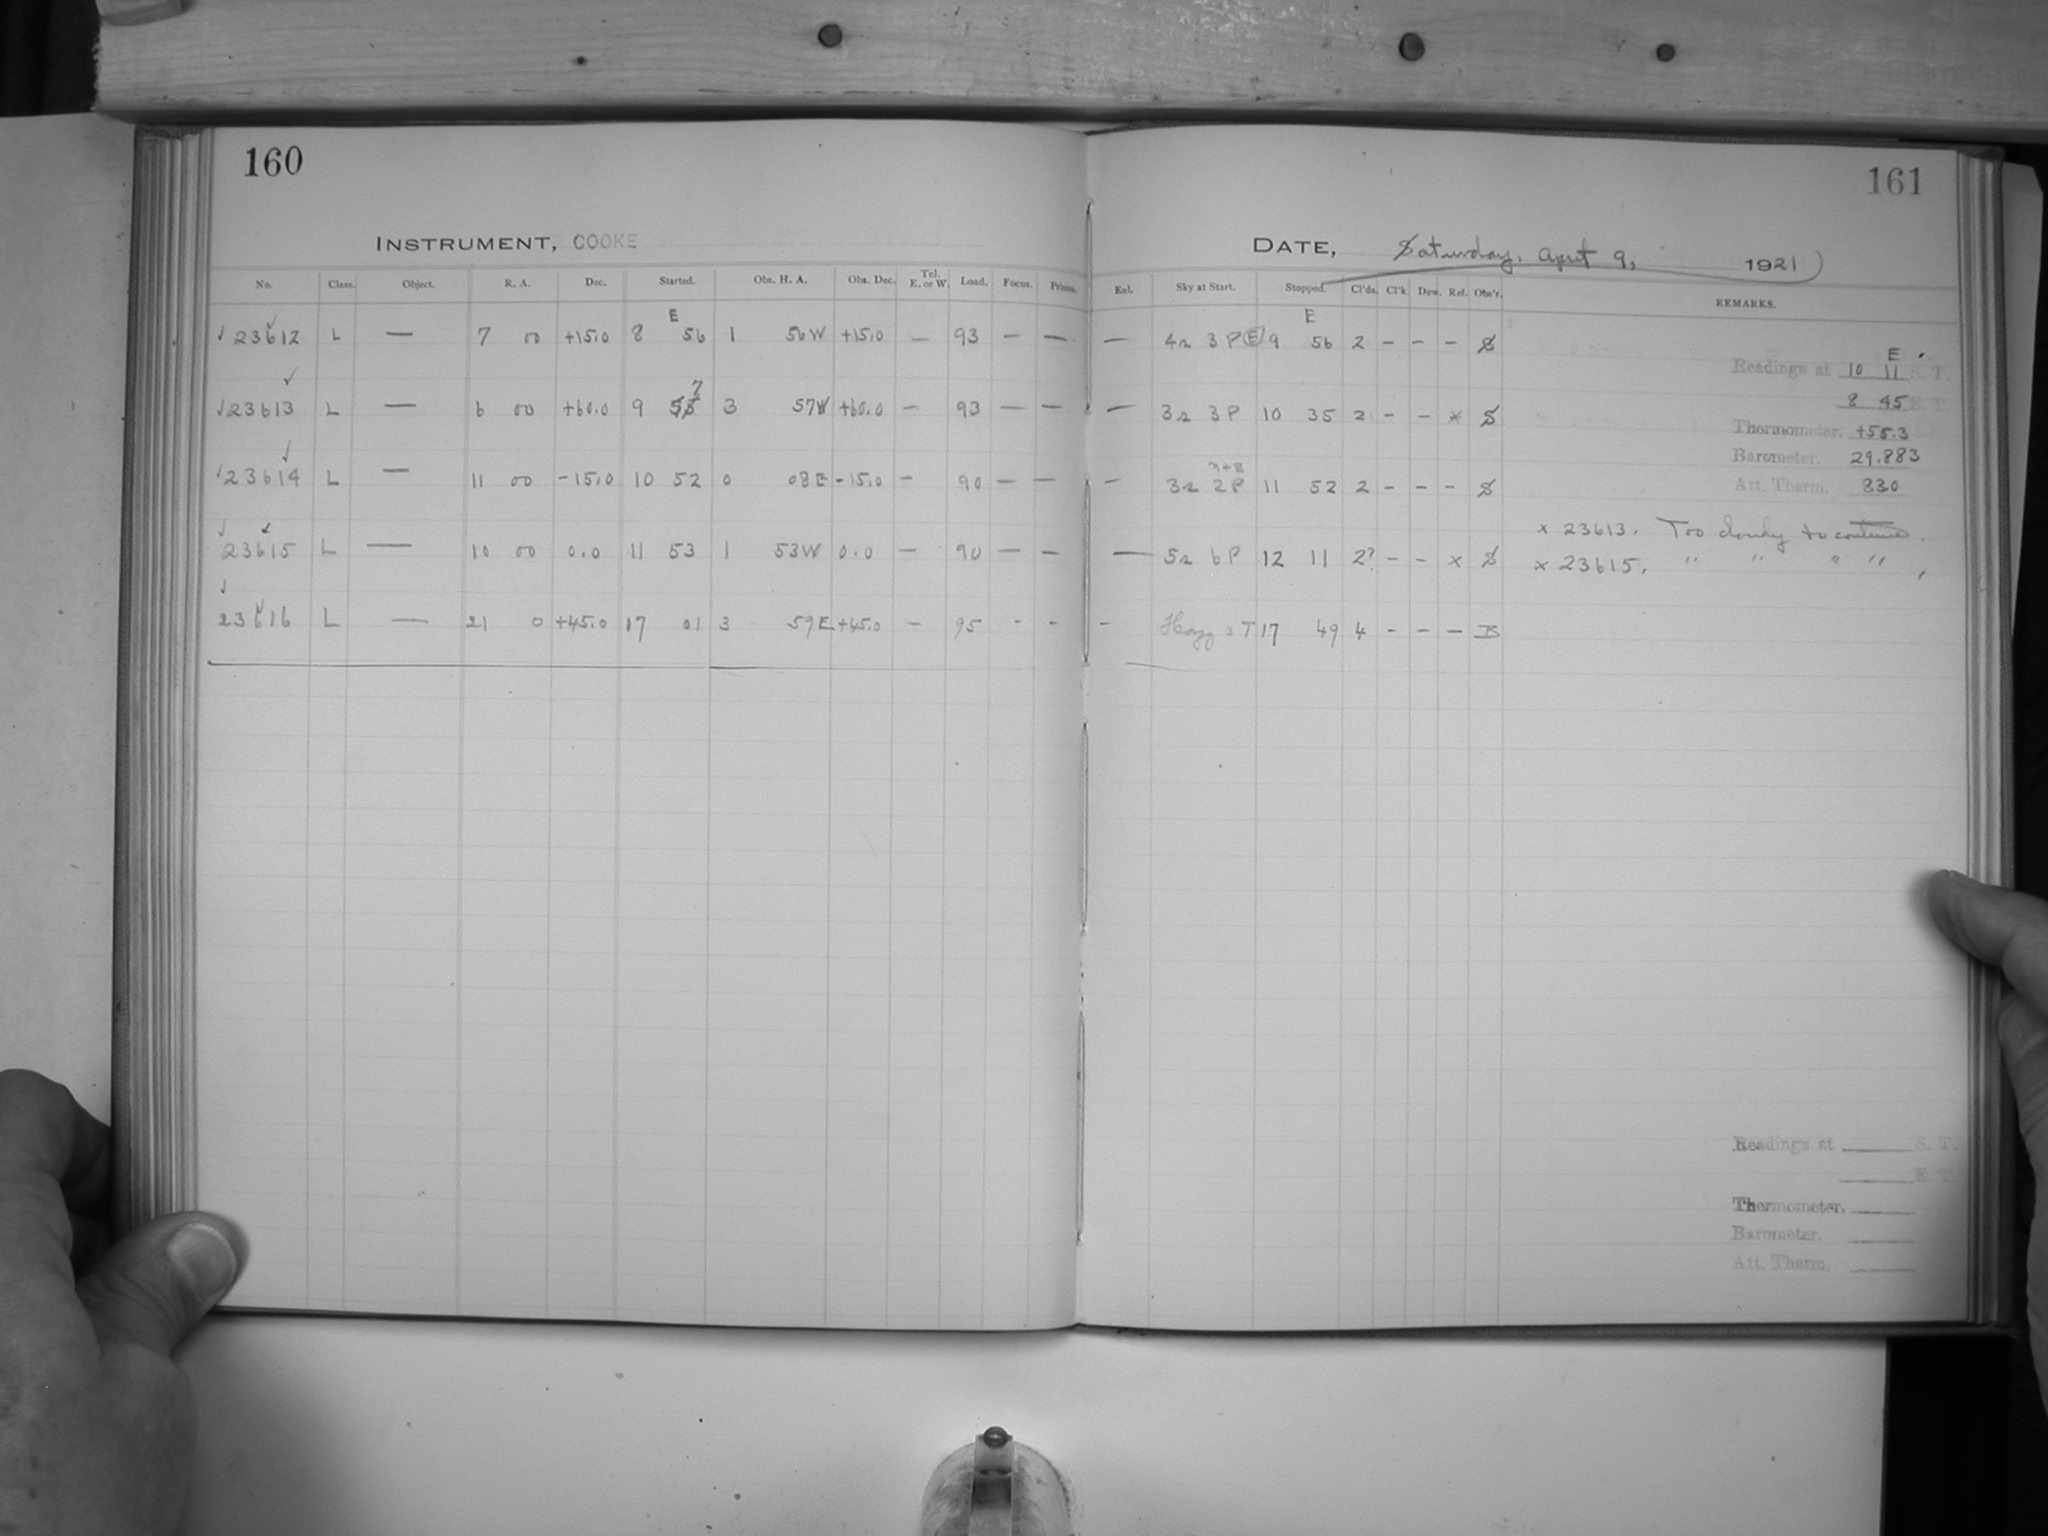 160
INSTRUMENT, COOKE
No. Class. Object. R. A. Dec. Started. Obs. H. A. Obs. Dec. Tel. E. or W. Load. Focus. Prisms.
23612 L — 7 00 +15.0 8 E 56 1 56W +15.0 — 93 — —
23613 L — 6 00 +60.0 9 57 3 57W +60.0 — 93 — —
23614 L — 11 00 -15.0 10 52 0 08E -15.0 — 90 — —
23615 L — 10 00 0.0 11 53 1 53W 0.0 — 90 — —
23616 L — 21 0 +45.0 17 01 3 59E +45.0 — 95 - -
161
DATE, Saturday, April 9, 1921
Enl. Sky at Start. Stopped. Cl'ds. Cl'k Dew. Ref. Obs'r. REMARKS.
— 4a 3P E 9 E 56 2 - - - S
— 3a 3P 10 35 2 - - x S
— 3a 2P n+E 11 52 2 - - - S
— 5a 6P 12 11 2? - - x S
- Hazy T 17 49 4 - - - B
Readings at 10 E 11 S. T.
8 45 E. T.
Thermometer,
Barometer. 29.883
Att. Therm. 83.0
x 23613. Too cloudy to continue.
x 23615. " " " " ,
Readings at S. T.
E. T.
Thermometer,
Barometer.
Att. Therm.